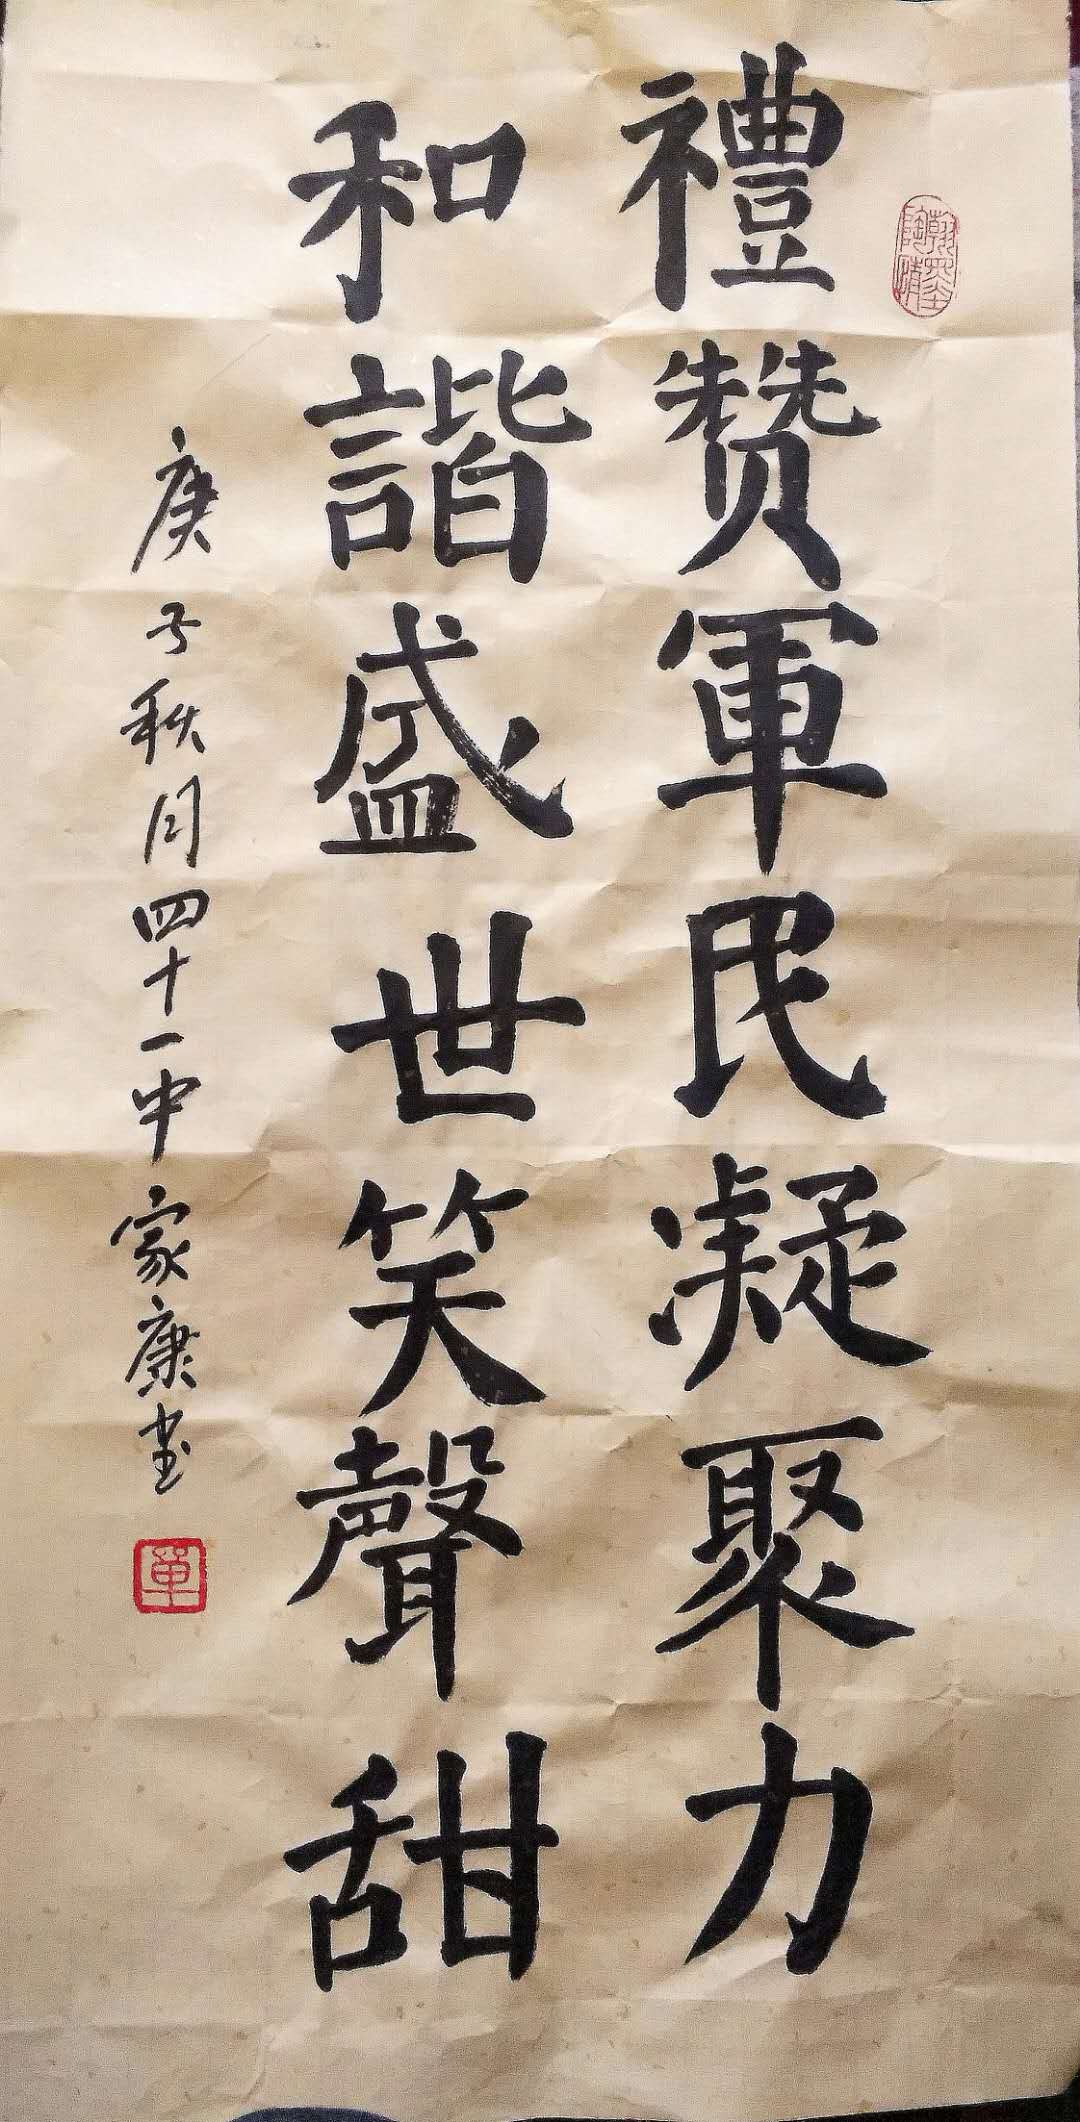 禮赞軍民凝聚力
和諧盛世笑聲甜
庚子秋月四十一中家康书
翰墨陶情